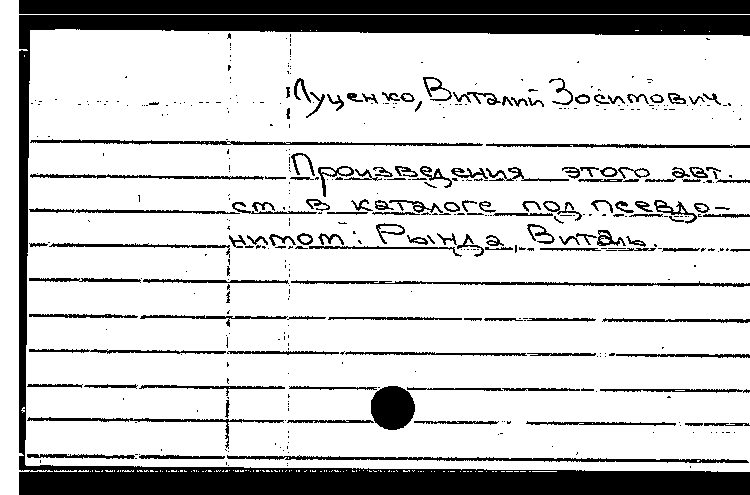 Луценко, Виталий Зосимович.
Произведения этого авт.
см. в каталоге под псевдо-
нимом: Рында, Виталь.